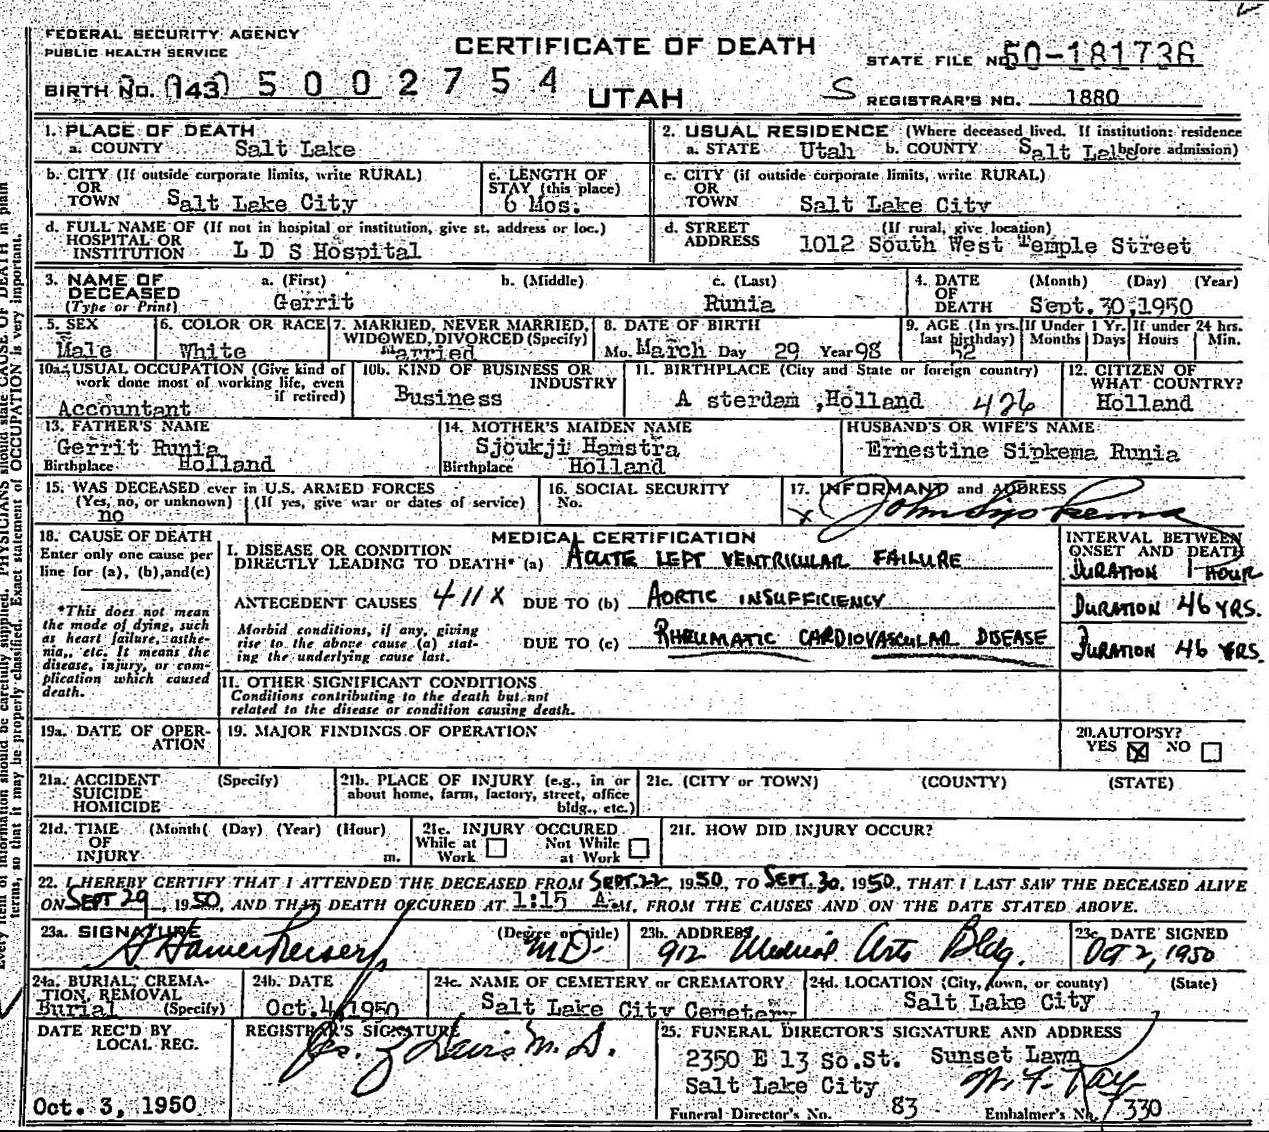 FEDERAL SECURITY AGENCY
PUBLIC HEALTH SERVICE
CERTIFICATE OF DEATH
STATE FILE NO. 50-181736
BIRTH No. (143) 5 0 0 2 7 5 4
UTAH
S
REGISTRAR'S NO. 1880
1. PLACE OF DEATH
a. COUNTY Salt Lake
2. USUAL RESIDENCE (Where deceased lived. If institution: residence
a. STATE Utah b. COUNTY Salt Lake before admission)
b. CITY (If outside corporate limits, write RURAL)
OR
TOWN Salt Lake City
c. LENGTH OF
STAY (this place)
6 Mos.
c. CITY (if outside corporate limits, write RURAL)
OR
TOWN Salt Lake City
d. FULL NAME OF (If not in hospital or institution, give st. address or loc.)
HOSPITAL OR
INSTITUTION L D S Hospital
d. STREET (If rural, give location)
ADDRESS 1012 South West Temple Street
3. NAME OF a. (First) b. (Middle) c. (Last)
DECEASED
(Type or Print) Gerrit Runia
4. DATE (Month) (Day) (Year)
OF
DEATH Sept. 30, 1950
5. SEX
Male
6. COLOR OR RACE
White
7. MARRIED, NEVER MARRIED,
WIDOWED, DIVORCED (Specify)
Married
8. DATE OF BIRTH
Mo. March Day 29 Year 98
9. AGE (In yrs.
last birthday)
52
If Under 1 Yr.
Months Days
If under 24 hrs.
Hours Min.
10a. USUAL OCCUPATION (Give kind of
work done most of working life, even
if retired)
Accountant
10b. KIND OF BUSINESS OR
INDUSTRY
Business
11. BIRTHPLACE (City and State or foreign country)
A sterdam ,Holland 426
12. CITIZEN OF
WHAT COUNTRY?
Holland
13. FATHER'S NAME
Gerrit Runia
Birthplace Holland
14. MOTHER'S MAIDEN NAME
Sjoukji Hamstra
Birthplace Holland
HUSBAND'S OR WIFE'S NAME
Ernestine Sipkema Runia
15. WAS DECEASED ever in U.S. ARMED FORCES
(Yes, no, or unknown) (If yes, give war or dates of service)
no
16. SOCIAL SECURITY
No.
17. INFORMANT and ADDRESS
x John Sipkema
18. CAUSE OF DEATH
Enter only one cause per
line for (a), (b),and(c)
*This does not mean
the mode of dying, such
as heart failure, asthe-
nia,, etc. It means the
disease, injury, or com-
plication which caused
death.
MEDICAL CERTIFICATION
I. DISEASE OR CONDITION
DIRECTLY LEADING TO DEATH* (a) ACUTE LEFT VENTRICULAR FAILURE
ANTECEDENT CAUSES 411X DUE TO (b) AORTIC INSUFFICIENCY
Morbid conditions, if any, giving
rise to the above cause (a) stat-
ing the underlying cause last.
DUE TO (c) RHEUMATIC CARDIOVASCULAR DISEASE
INTERVAL BETWEEN
ONSET AND DEATH
DURATION 1 HOUR
DURATION 46 YRS.
DURATION 46 YRS.
II. OTHER SIGNIFICANT CONDITIONS
Conditions contributing to the death but not
related to the disease or condition causing death.
19a. DATE OF OPER-
ATION
19. MAJOR FINDINGS OF OPERATION
20.AUTOPSY?
YES X NO
21a. ACCIDENT (Specify)
SUICIDE
HOMICIDE
21b. PLACE OF INJURY (e.g., in or
about home, farm, factory, street, office
bldg., etc.)
21c. (CITY or TOWN) (COUNTY) (STATE)
21d. TIME (Month( (Day) (Year) (Hour)
OF
INJURY m.
21e. INJURY OCCURED
While at Not While
Work at Work
21f. HOW DID INJURY OCCUR?
22. I HEREBY CERTIFY THAT I ATTENDED THE DECEASED FROM SEPT. 22, 1950, TO SEPT. 30, 1950, THAT I LAST SAW THE DECEASED ALIVE
ON SEPT 29, 1950, AND THAT DEATH OCCURED AT 1:15 A.M, FROM THE CAUSES AND ON THE DATE STATED ABOVE.
23a. SIGNATURE (Degree or title)
MD.
23b. ADDRESS
912 Medical Arts Bldg.
23c. DATE SIGNED
OCT 2, 1950
24a. BURIAL, CREMA-
TION, REMOVAL
Burial (Specify)
24b. DATE
Oct. 4, 1950
24c. NAME OF CEMETERY or CREMATORY
Salt Lake City Cemetery
24d. LOCATION (City, town, or county) (State)
Salt Lake City
DATE REC'D BY
LOCAL REG.
Oct. 3, 1950
REGISTRAR'S SIGNATURE
M. D.
25. FUNERAL DIRECTOR'S SIGNATURE AND ADDRESS
2350 E 13 So.St. Sunset Lawn
Salt Lake City
Funeral Director's No. 83 Embalmer's No. 330
Every item of information should be carefully supplied. PHYSICIANS should state CAUSE OF DEATH in plain
terms, so that it may be properly classified. Exact statement of OCCUPATION is very important.